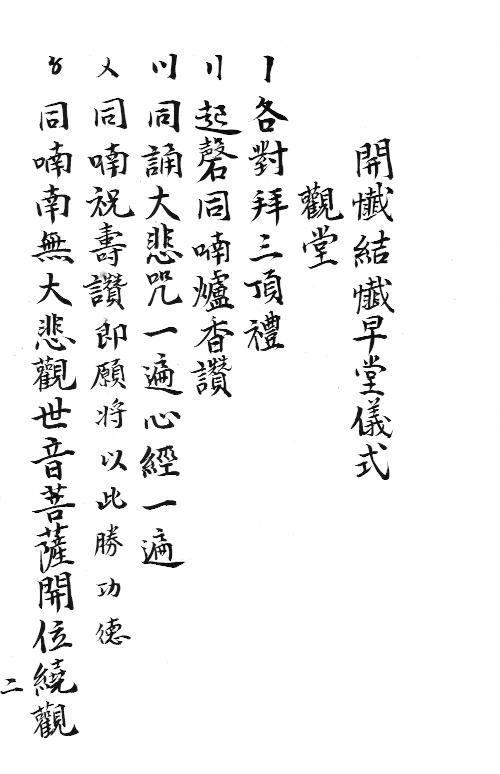 開懺結懺早堂儀式
觀堂
〡各對拜三頂禮
〢起磬同喃爐香讚
〣同誦大悲咒一遍心經一遍
〤同喃祝壽讚即願将以此勝功德
〥同喃南無大悲觀世音菩薩開位繞觀
二